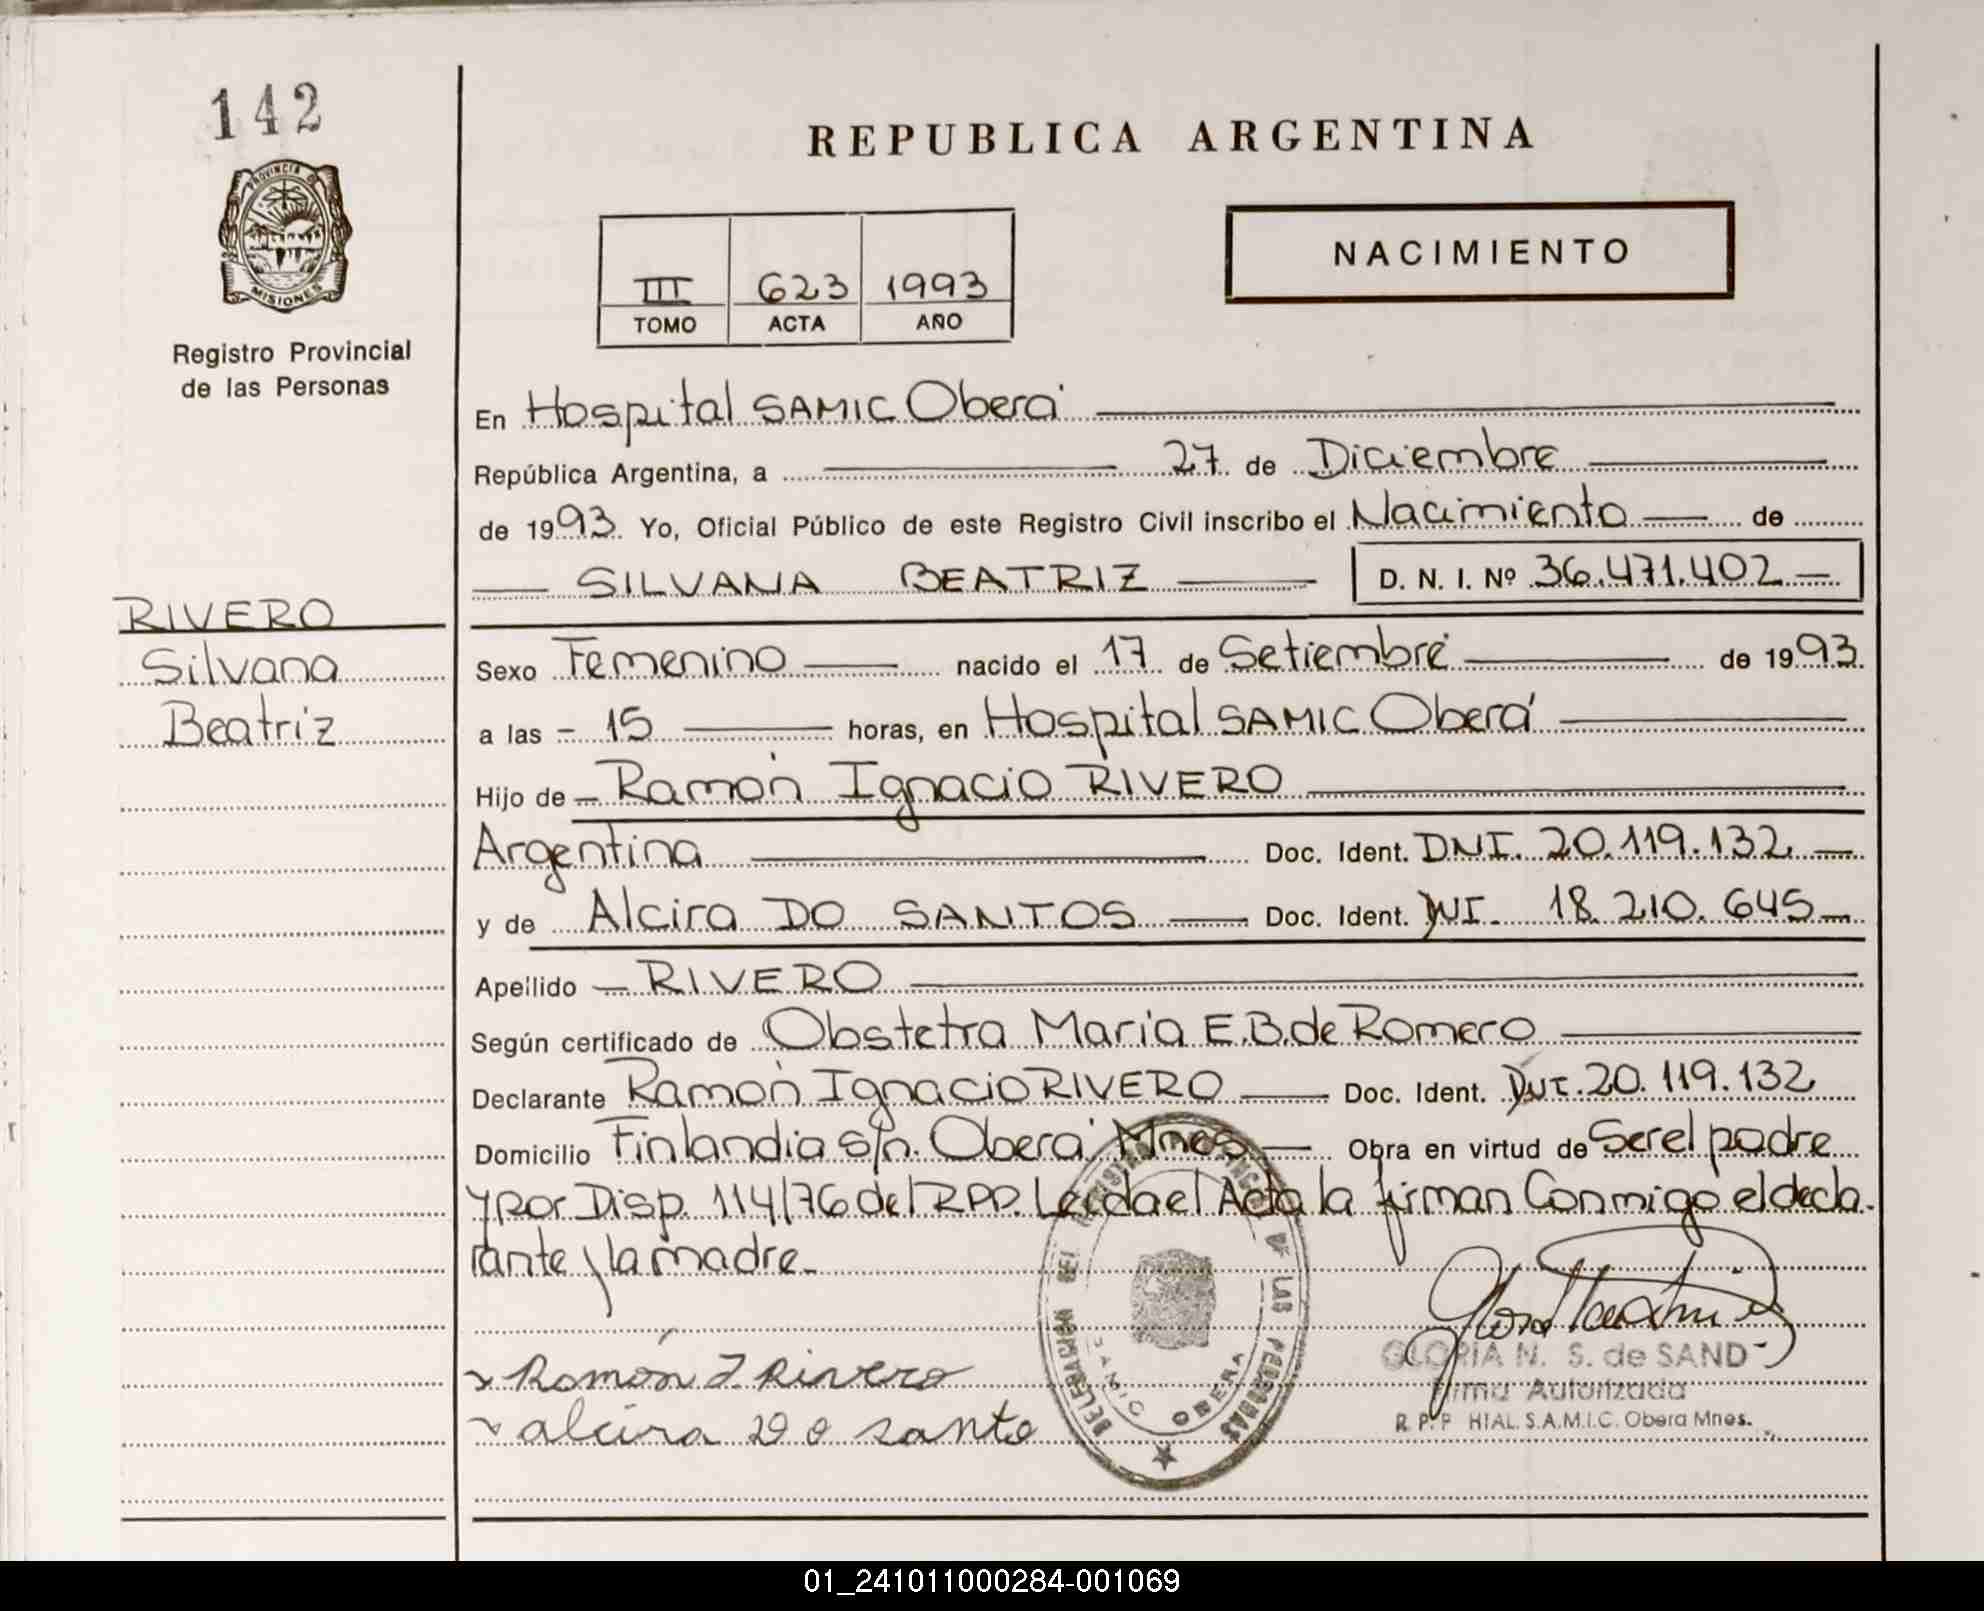 142
PROVINCIA DE
MISIONES
Registro Provincial
de las Personas
RIVERO
Silvana
Beatriz
REPUBLICA ARGENTINA
NACIMIENTO
III 623 1993
TOMO ACTA AÑO
En Hospital SAMIC Oberá
República Argentina, a 27 de Diciembre
de 1993 Yo, Oficial Público de este Registro Civil inscribo el Nacimiento de
SILVANA BEATRIZ D. N. I. Nº 36.471.402
Sexo Femenino nacido el 17 de Setiembre de 1993
a las - 15 horas, en Hospital SAMIC Oberá
Hijo de Ramón Ignacio RIVERO
Argentina Doc. Ident. DNI. 20.119.132
y de Alcira DO SANTOS Doc. Ident. DNI. 18.210.645
Apellido RIVERO
Según certificado de Obstetra Maria E.B. de Romero
Declarante Ramón Ignacio RIVERO Doc. Ident. DNI. 20.119.132
Domicilio Finlandia s/n. Oberá Mnes Obra en virtud de Ser el padre
y por Disp. 114/76 del RPP. Leída el Acta la firman Conmigo el decla.
rante y la madre.
Ramón I. Rivero
alcira do santo
DELEGACION DEL REGISTRO PROVINCIAL DE LAS PERSONAS
SAMIC OBERA
GLORIA N. S. de SAND
Firma Autorizada
R.P.P HIAL. S.A.M.I.C. Obera Mnes.
01_241011000284-001069